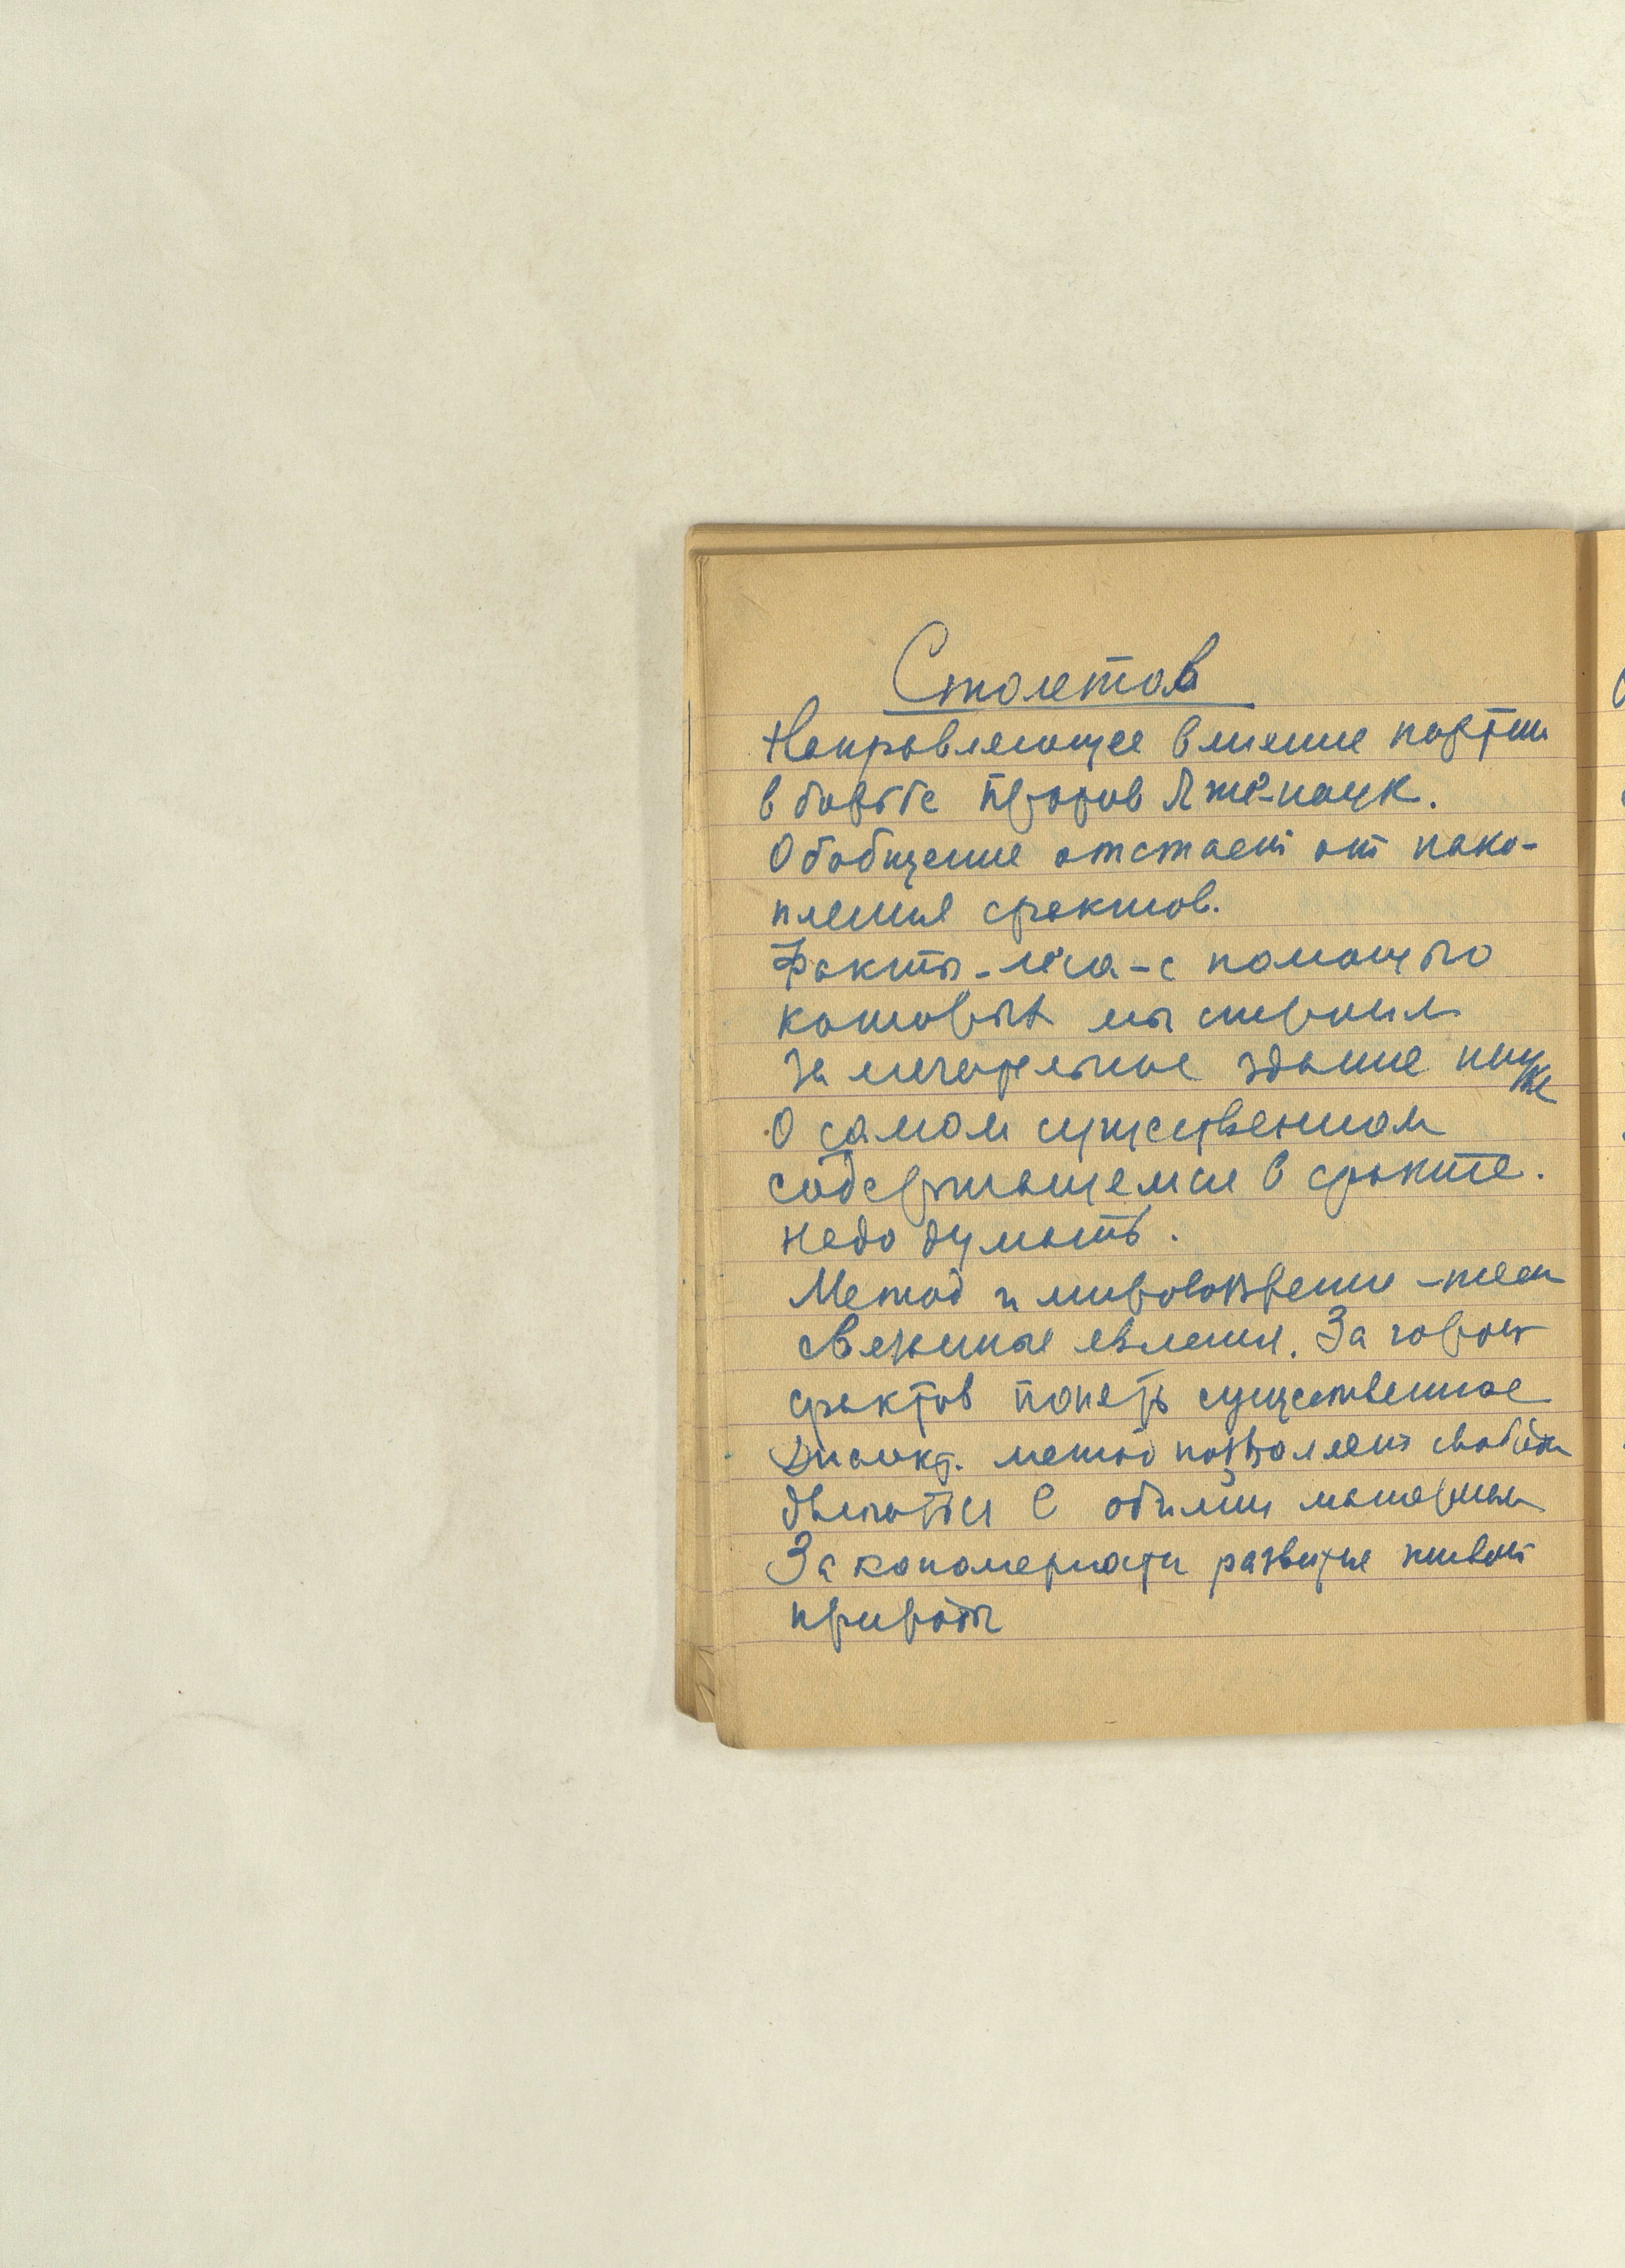 Столетов
Направляющее влияние партии
в борьбе против Лже-наук.
Обобщение отстает от нако-
пления фактов.
Факты - леса - с помощью
которых мы строим
замечательное здание науки
О самом существенном
содержащемся в факте.
надо думать.
Метод и мировоззрение - тесн
связанные явления. За горой
фактов понять существенное
Диалект. метод позволяет свободн
двигаться в обилии материал
Закономерности развития живой
природы